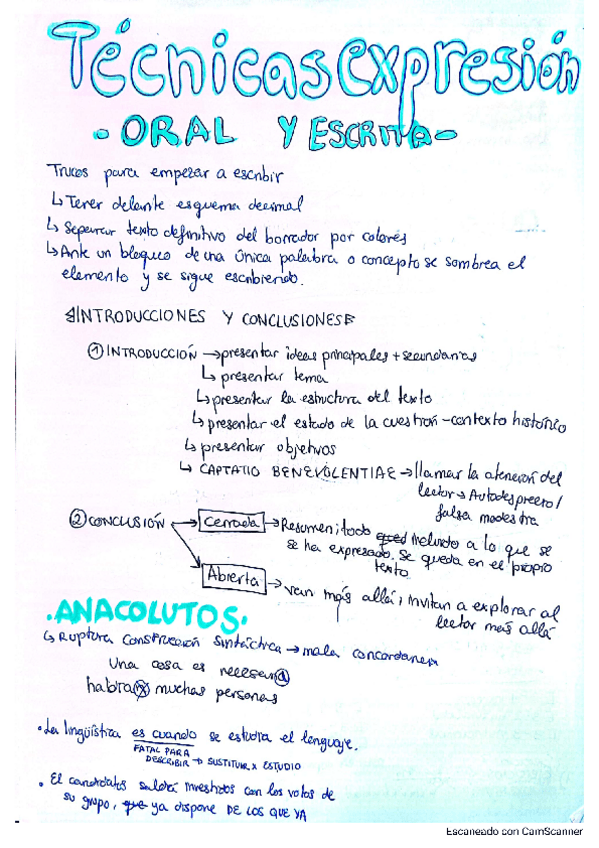 Técnicas expresión
- ORAL Y ESCRITA -
Trucos para empezar a escribir
↳ Tener delante esquema decimal
↳ Separar texto definitivo del borrador por colores
↳ Ante un bloqueo de una única palabra o concepto se sombrea el
elemento y se sigue escribiendo.
INTRODUCCIONES Y CONCLUSIONES
① INTRODUCCIÓN → presentar ideas principales + secundarias
↳ presentar tema
↳ presentar la estructura del texto
↳ presentar el estado de la cuestión - contexto histórico
↳ presentar objetivos
↳ CAPTATIO BENEVOLENTIAE → llamar la atención del
lector → Autodesprecio /
falsa modestia
② CONCLUSIÓN → Cerrada → Resumen; todo incluido a lo que se
se ha expresado. Se queda en el propio
texto
Abierta → van más allá; invitan a explorar al
lector más allá
. ANACOLUTOS.
↳ Ruptura construcción sintáctica → mala concordancia
Una cosa es necesaria
habían muchas personas
• La lingüística es cuando se estudia el lenguaje.
FATAL PARA
DESCRIBIR → SUSTITUIR x ESTUDIO
• El candidatos saldrá investidos con los votos de
su grupo, que ya dispone DE LOS QUE YA
Escaneado con CamScanner